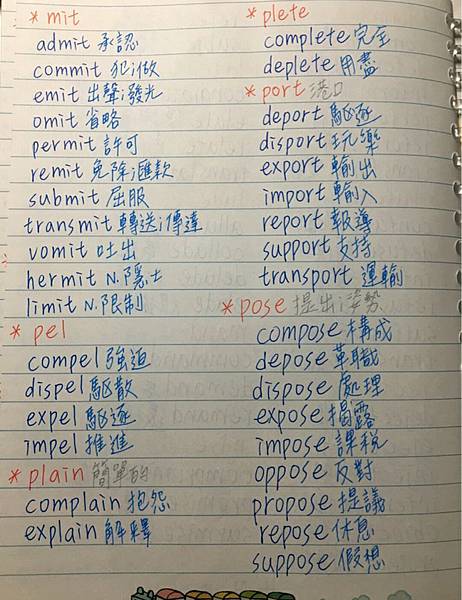 * mit
admit 承認
commit 犯;做
emit 出聲;發光
omit 省略
permit 許可
remit 免除;匯款
submit 屈服
transmit 轉送;傳達
vomit 吐出
hermit N.隱士
limit N.限制
* pel
compel 強迫
dispel 驅散
expel 驅逐
impel 推進
* plain 簡單的
complain 抱怨
explain 解釋
* plete
complete 完全
deplete 用盡
* port 港口
deport 驅逐
disport 玩樂
export 輸出
import 輸入
report 報導
support 支持
transport 運輸
* pose 提出;姿勢
compose 構成
depose 革職
dispose 處理
expose 揭露
impose 課稅
oppose 反對
propose 提議
repose 休息
suppose 假想